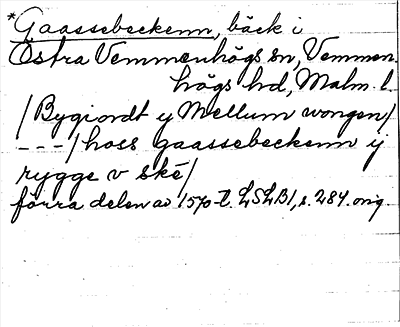 *Gaassebeckenn, bäck i
Östra Vemmenhögs sn, Vemmen-
högs hd, Malm. l.
/Bygiordt y Mellum wongen/
---/hoss gaassebeckenn ij
rygge v ske/
förra delen av 1570-t. LSLB1, s. 284. orig.